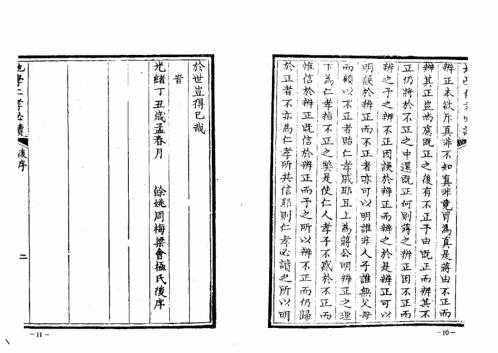 辨正本欲斥真非不知真非竟冒為真是蔣由不正而
辨其正豈尚慮既正之後有不正予由既正而辨其不
正仍將於不正之中還既正何則蔣之辨正因不正而
辨之予之辨不正因誤於辨正而辨之於是辨正可以
明誤於辨正而不正者亦可以明誰非人子誰無父母
而顧以不正者貽仁孝戚耶且上為蔣公明辨正之理
下為仁孝指不正之獘是使仁人孝子不惑於不正而
惟信於辨正既信於辨正而予之所以辨不正而仍歸
於正者不亦為仁孝所共信耶則仁孝必讀之所以明
—10—
於世豈得已哉
旹
光緒丁丑歲孟春月
餘姚周梅梁會極氏後序
地學仁孝必讀
後序
二
—11—